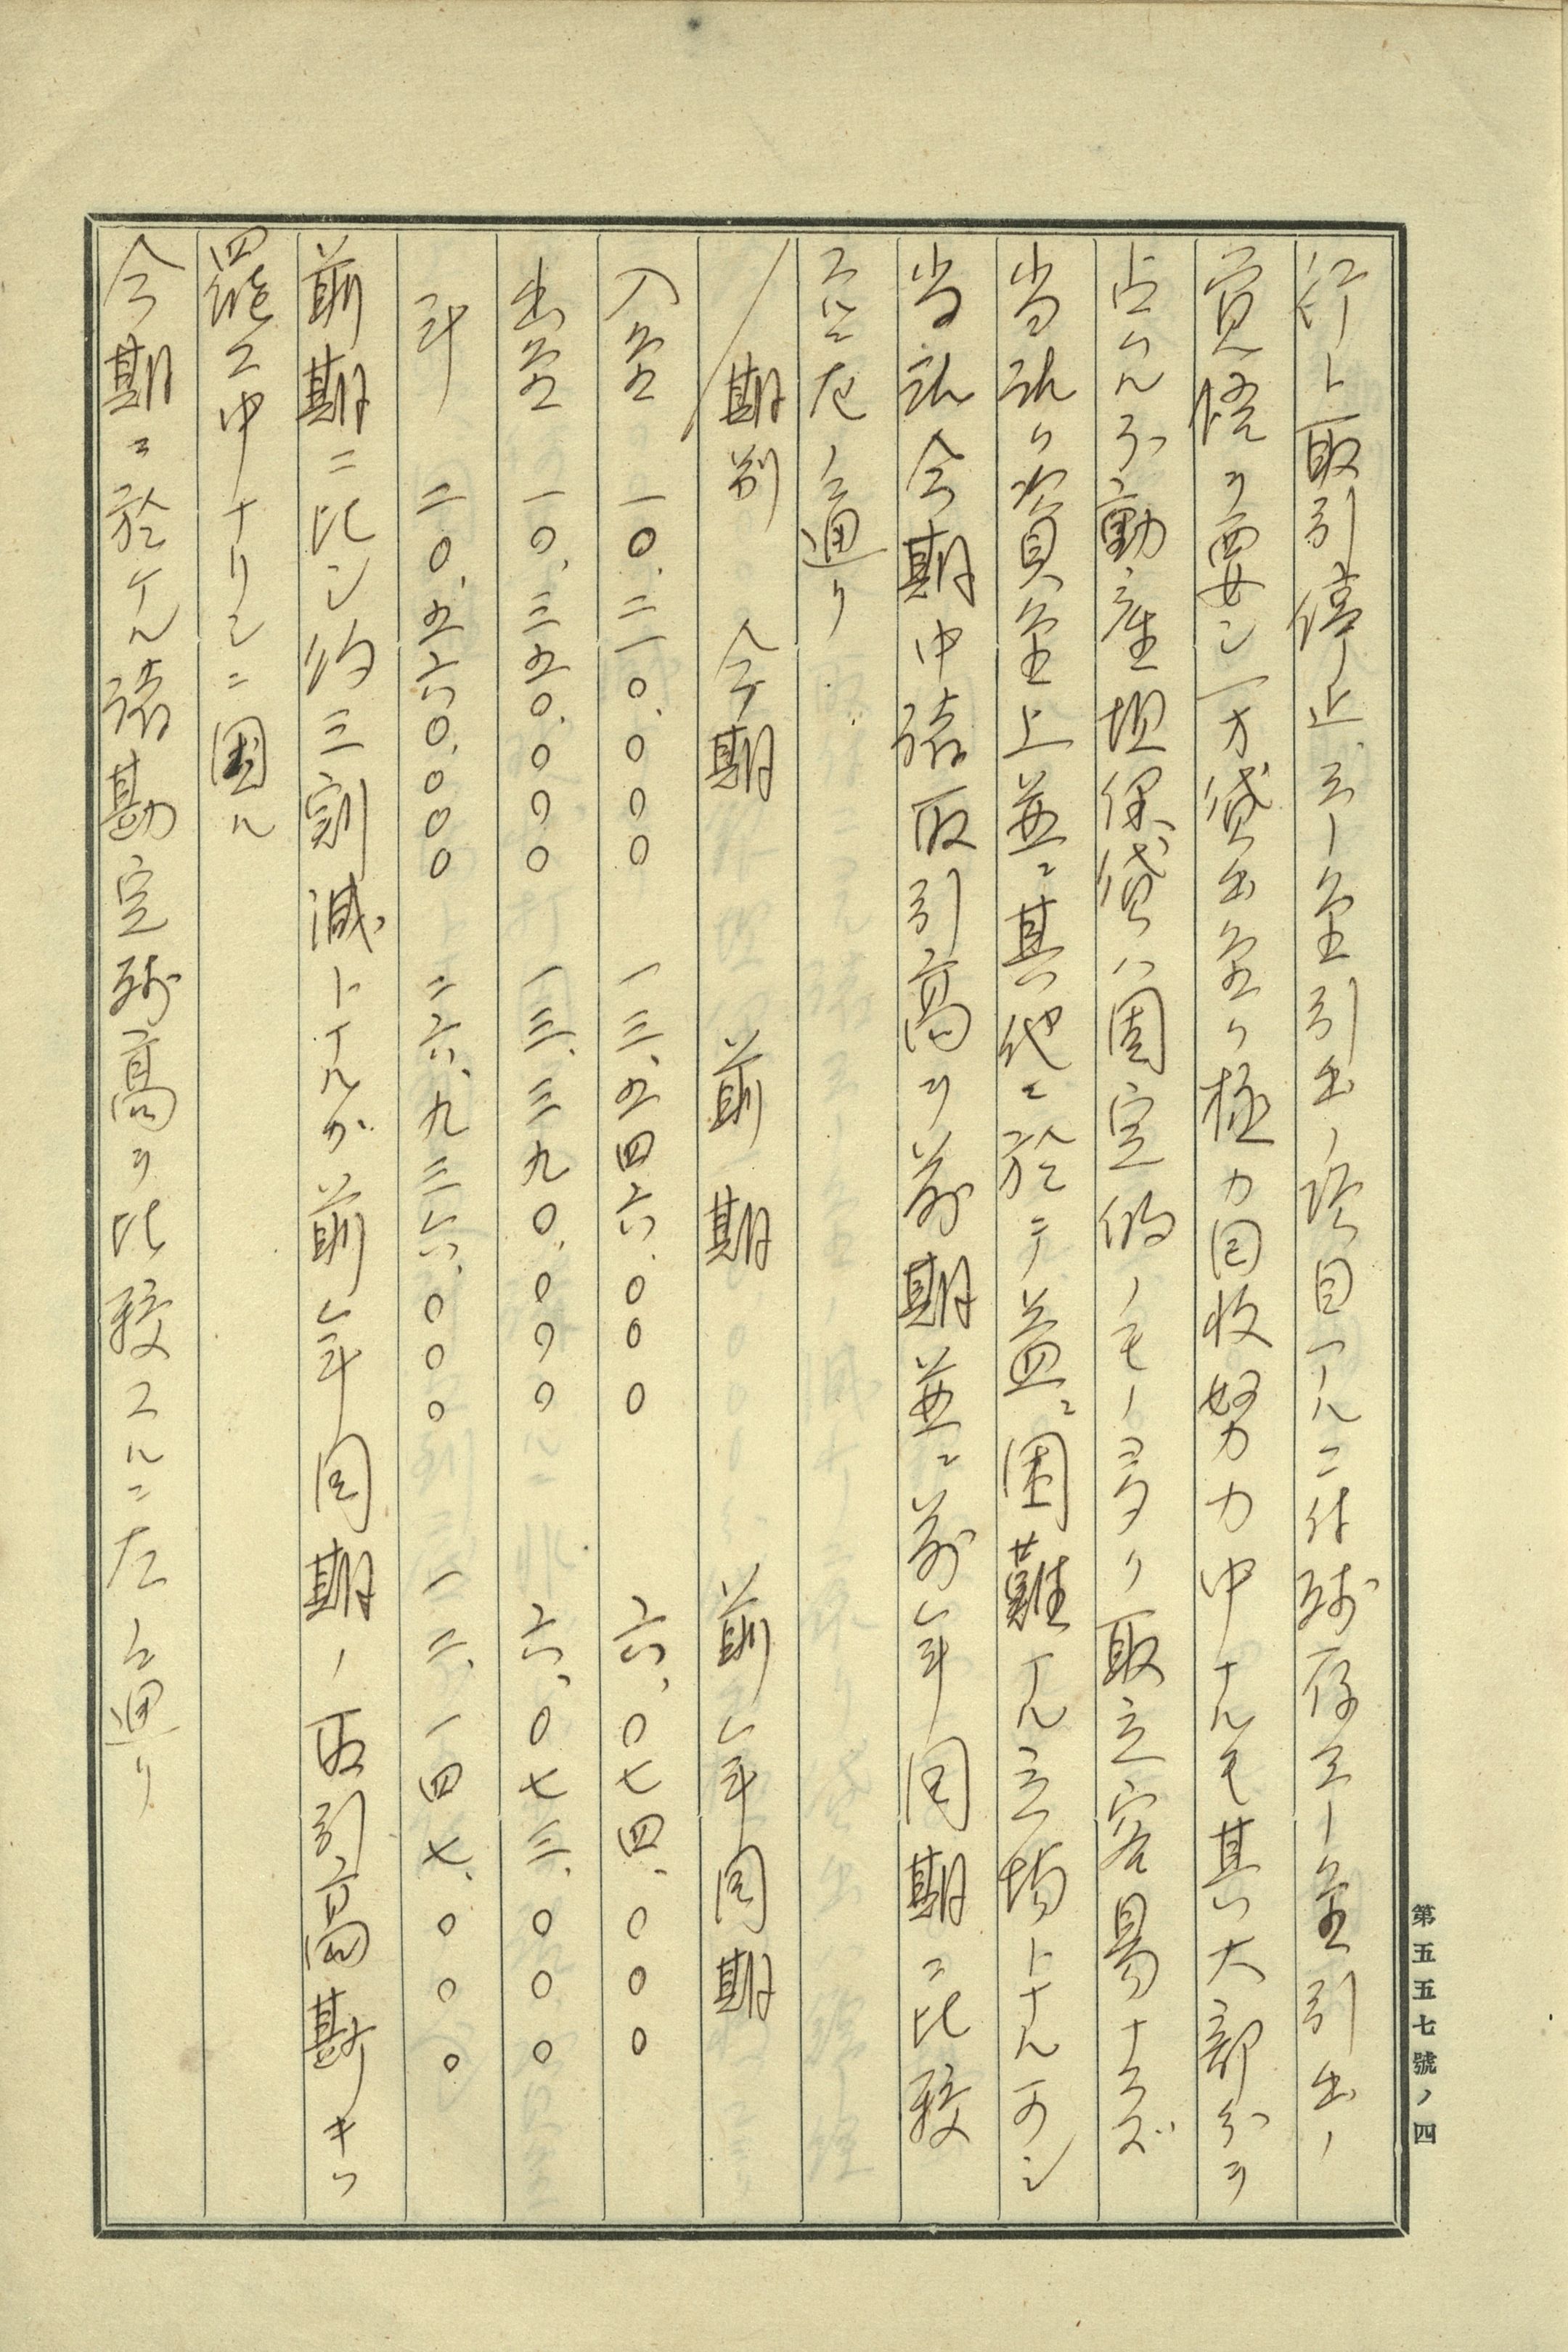 行ト取引停止、ヨリ金引出ノ語目アルニ付残存ヨリ金引出ノ
覚悟ヲ要シ一方貸出金ハ極力回収努力中ナルモ其ノ大部分ヲ
占ムル不動産担保貸ハ固定的ノモノ多ク取立容易ナラズ
当計ハ資金上並ニ其他ニ於テ益々困難ナル立場トナル可シ
当計今期中諸取引高ヲ前期並ニ前年同期ニ比較
スルニ左ノ通リ
期別 今期 前期 前年同期
入金 一〇、二一〇、〇〇〇 一三、五四六、〇〇〇 六、〇七四、〇〇〇
出金 一〇、三五〇、〇〇〇 一三、三九〇、〇〇〇 六、〇七三、〇〇〇
計 二〇、五六〇、〇〇〇 二六、九三六、〇〇〇 一二、一四七、〇〇〇
前期ニ比シ約三割減トナルガ前年同期ノ取引高斯ナキハ
罷工中ナリシニ因ル
今期ニ於ケル諸勘定残高ヲ比較スルニ左ノ通リ
第五五七號ノ四